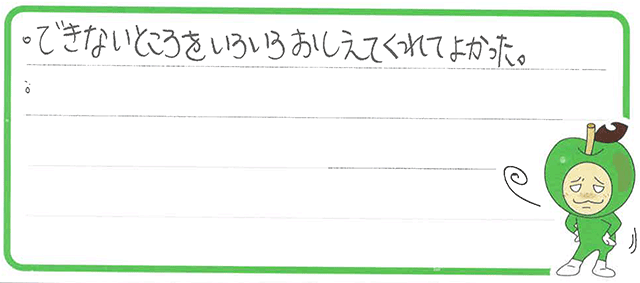 。できないところをいろいろおしえてくれてよかった。